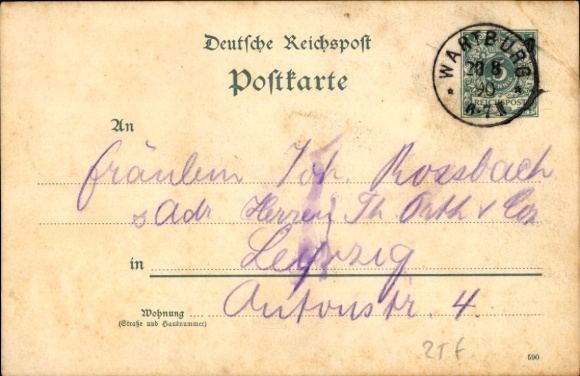 Deutsche Reichspost
Postkarte
WARTBURG
20 8
90
6-7 N
REICHSPOST
An
Fräulein Joh. Rossbach
Adr Herren Th Orth & Co
in Leipzig
Wohnung Antonstr. 4.
(Straße und Hausnummer)
590